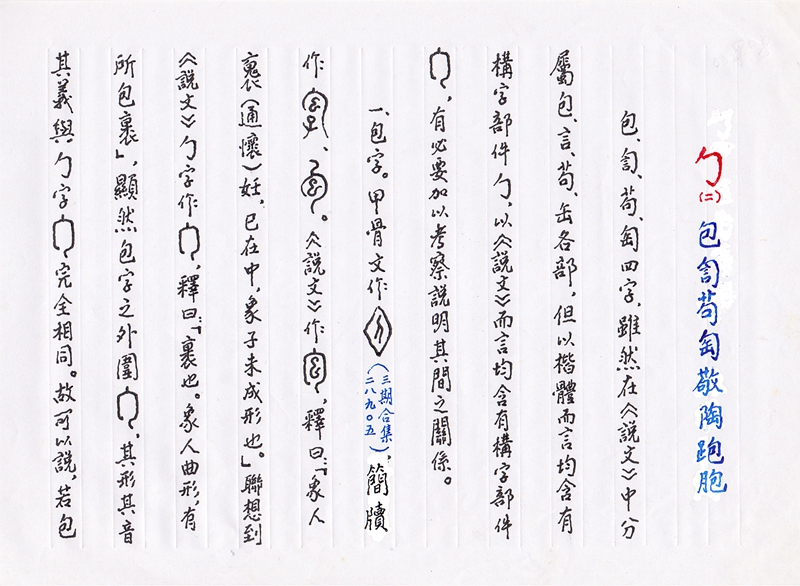 勹(二)包訇茍匋敬陶跑胞
包、訇、茍、匋四字，雖然在《說文》中分
屬包、言、茍、缶各部，但以楷體而言均含有
構字部件勹，以《說文》而言均含有構字部件
，有必要加以考察說明其間之關係。
一、包字。甲骨文作(三期合集二八九〇五)，簡牘
作、。《說文》作，釋曰：「象人
裹(通懷)妊，巳在中，象子未成形也」。聯想到
《說文》勹字作，釋曰：「裹也。象人曲形，有
所包裹」，顯然包字之外圍，其形其音
其義與勹字完全相同。故可以說，若包